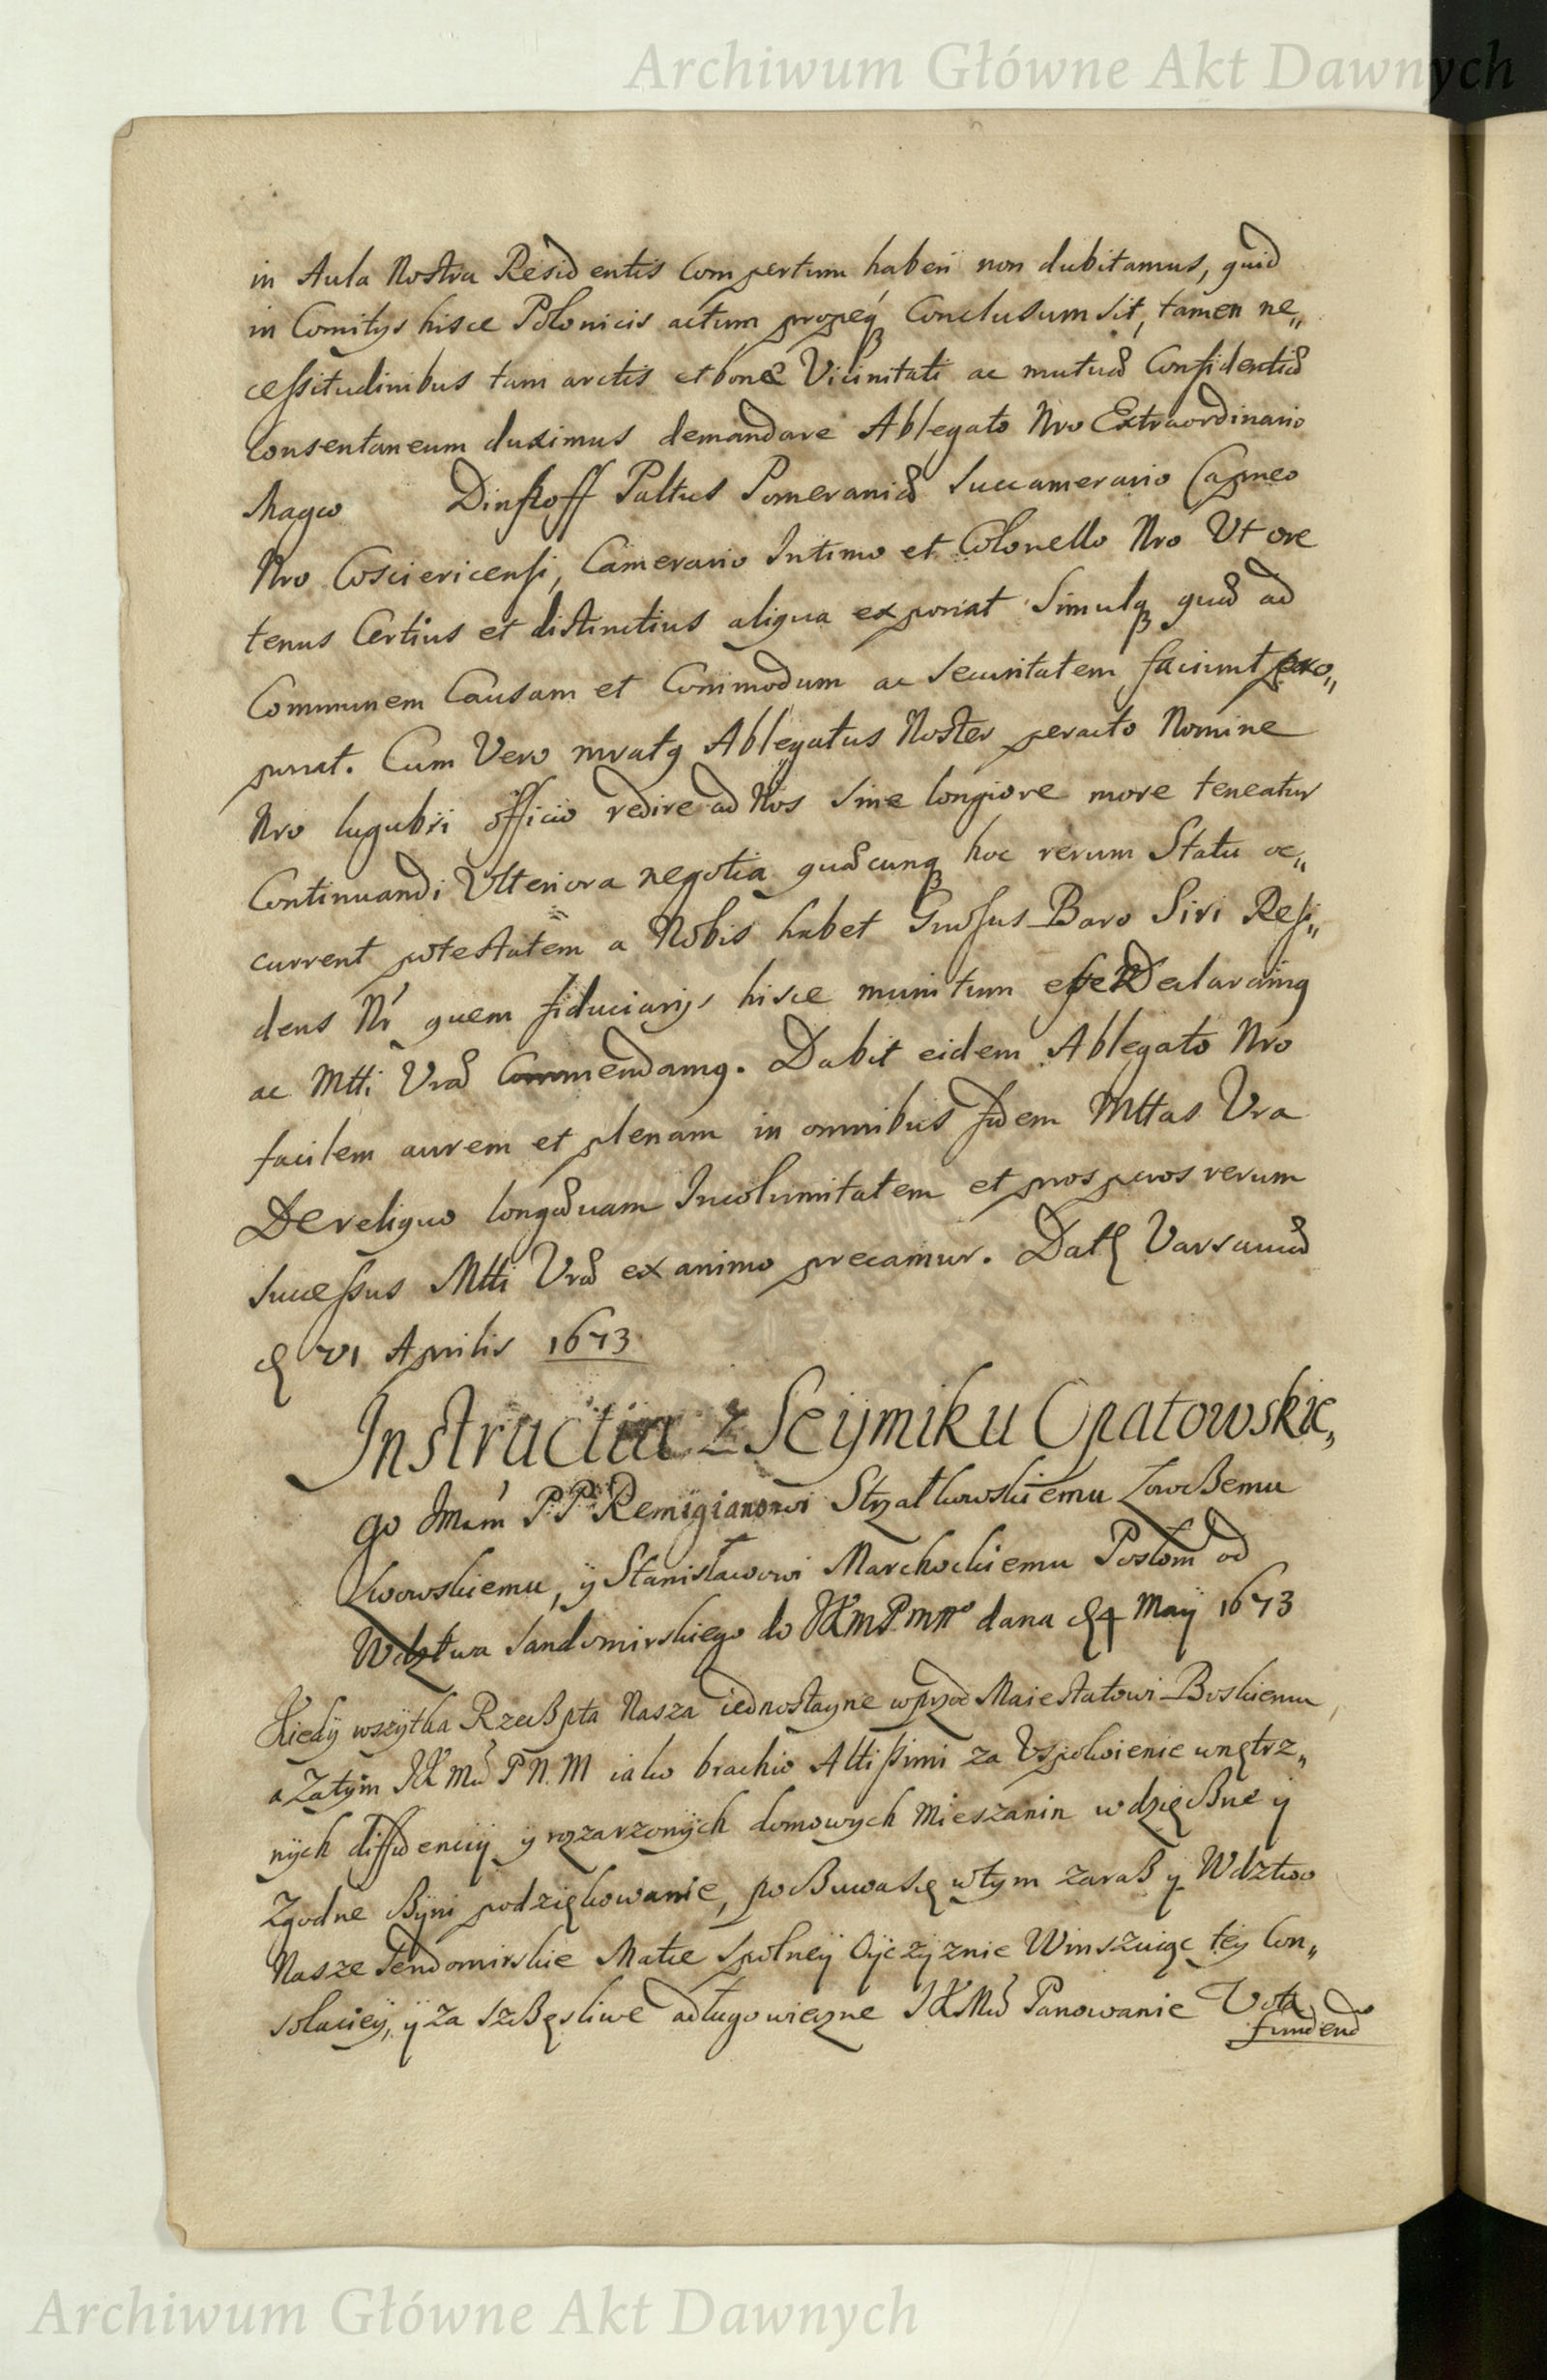 Archiwum Główne Akt Dawnych
in Aula Nostra Residentis Compertum haberi non dubitamus, quid
in Comitys hisce Polonicis actum propeq Conclusum sit, tamen ne„
cessitudinibus tam arctis et bonæ Vicinitati ac mutuæ Confidentiæ
Consentaneum duximus demandare Ablegato Nro Extraordinario
Magco Dinhoff Pallus Pomeraniæ Succamerario Capneo
Nro Cosciericensi, Camerario Intimo et Colonello Nro Vt ore
tenus Certius et distinctius aliqua exponat Simulq quæ ad
Communem Causam et Commodum ac Securitatem faciunt pro„
ponat. Cum Vero mratq Ablegatus Noster peracto Nomine
Nro lugubri officio redire ad Nos sine longiore more teneatur
Continuandi Vlteriora negotia quæcunq hoc rerum Statu oc„
current potestatem a Nobis habet Gnosus Baro Siri Resi„
dens Nr quem fiduciarijs hisce munitum esse Declaramq
ac Mtti Vræ Commendamq. Dabit eidem Ablegato Nro
facilem aurem et plenam in omnibus fidem Mttas Vra
De reliquo longævam Incolumitatem et prosperos rerum
Successus Mtti Vræ ex animo precamur. Dat Varsaviæ
d VI Aprilis 1673
Instructia z Seijmiku Opatowskie„
go Imem P.P. Remigianowi Strzałkowskiemu Łowczemu
Lwowskiemu, ÿ Stanisławowi Marchockiemu Posłom od
Wdztwa Sandomirskiego do JKMPMMo dana d 4 Maij 1673
Kiedÿ wszÿtka Rzeczpta Nasza iednostayne wprzod Maiestatowi Boskiemu,
a Zatÿm JKMci P N. M iako brachio Altissimi za Vspokoienie wnętrz„
nÿch diffidenciÿ ÿ rozarzonÿch domowych Mieszanin wdzięczne ÿ
Zgodne czÿni podziękowanie, poczuwa się wtym zaraz ÿ Wdztwo
Nasze Sendomirskie Matce spolneÿ Oÿczÿznie Winszuiąc teÿ Con„
solacieÿ, ÿ za szczęsliwe a długowieczne JKMci Panowanie Vota
fundend
Archiwum Główne Akt Dawnych